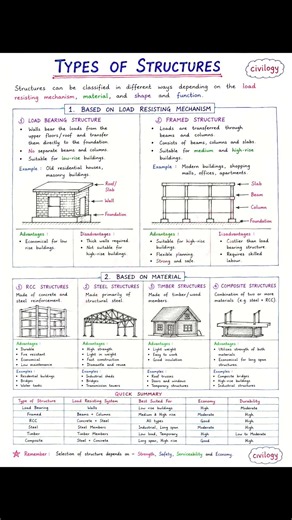 TYPES OF STRUCTURES
civilogy
Structures can be classified in different ways depending on the load
resisting mechanism, material, and shape and function.
1. BASED ON LOAD RESISTING MECHANISM
① LOAD BEARING STRUCTURE
• Walls bear the loads from the
upper floors/roof and transfer
them directly to the foundation.
• No separate beams and column
• Suitable for low-rise buildings.
Example : Old residential houses,
masonry buildings
Roof/
Slab
Wall
Foundation
Advantages :
• Economical for low
rise buildings.
Disadvantages :
• Thick walls required
• Not suitable for
high-rise buildings.
② FRAMED STRUCTURE
• Loads are transferred through
beams and columns
• Consists of beams, columns and slabs
• Suitable for medium and high-rise
buildings.
Example : Modern buildings, shopping
malls, offices, apartments.
Slab
Beam
Column
Foundation
Advantages :
• Suitable for high-rise
buildings
• Flexible planning
• Strong and safe
Disadvantages :
• Costlier than load
bearing structure
• Requires skilled
labour.
2. BASED ON MATERIAL
① RCC STRUCTURES
Made of concrete and
steel reinforcement.
Advantages :
• Durable
• Fire resistant
• Economical
• Low maintenance
Examples :
• Residential buildings
• Bridges
• Water tanks
② STEEL STRUCTURES
Made primarily of
structural steel.
Advantages :
• High strength
• Light in weight
• Fast construction
• Dismantle and reuse
Examples :
• Industrial sheds
• Bridges
• Transmission towers
③ TIMBER STRUCTURES
Made of timber/wood
members.
Advantages :
• Light weight
• Easy to work
• Good insulation
Examples :
• Roof trusses
• Doors and windows
• Temporary structures
④ COMPOSITE STRUCTURES
Combination of two or more
materials (e.g. steel + RCC)
Advantages :
• Utilizes strength of both
materials
• Economical for long span
structures
Examples :
• Composite bridges
• High-rise buildings
• Industrial structures
QUICK SUMMARY
Type of Structure Load Resisting System Best Suited For Economy Durability
Load Bearing Walls Low rise buildings High Moderate
Framed Beams + Columns Medium & High rise Moderate High
RCC Concrete + Steel All types Good High
Steel Steel Members Industrial, Long span Moderate High
Timber Timber Members Low load, Temporary High Low to Moderate
Composite Steel + Concrete Long span, High rise Good High
Remember : Selection of structure depends on - Strength, Safety, Serviceability and Economy.
civilogy